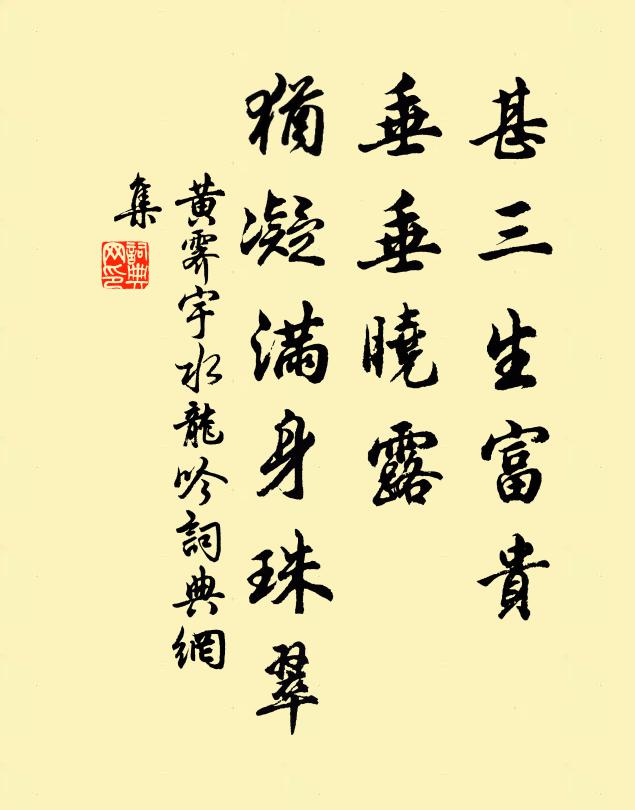 甚三生富貴
垂垂曉露
猶凝滿身珠翠
黃霽宇水龍吟詞典網
集
詞典網印